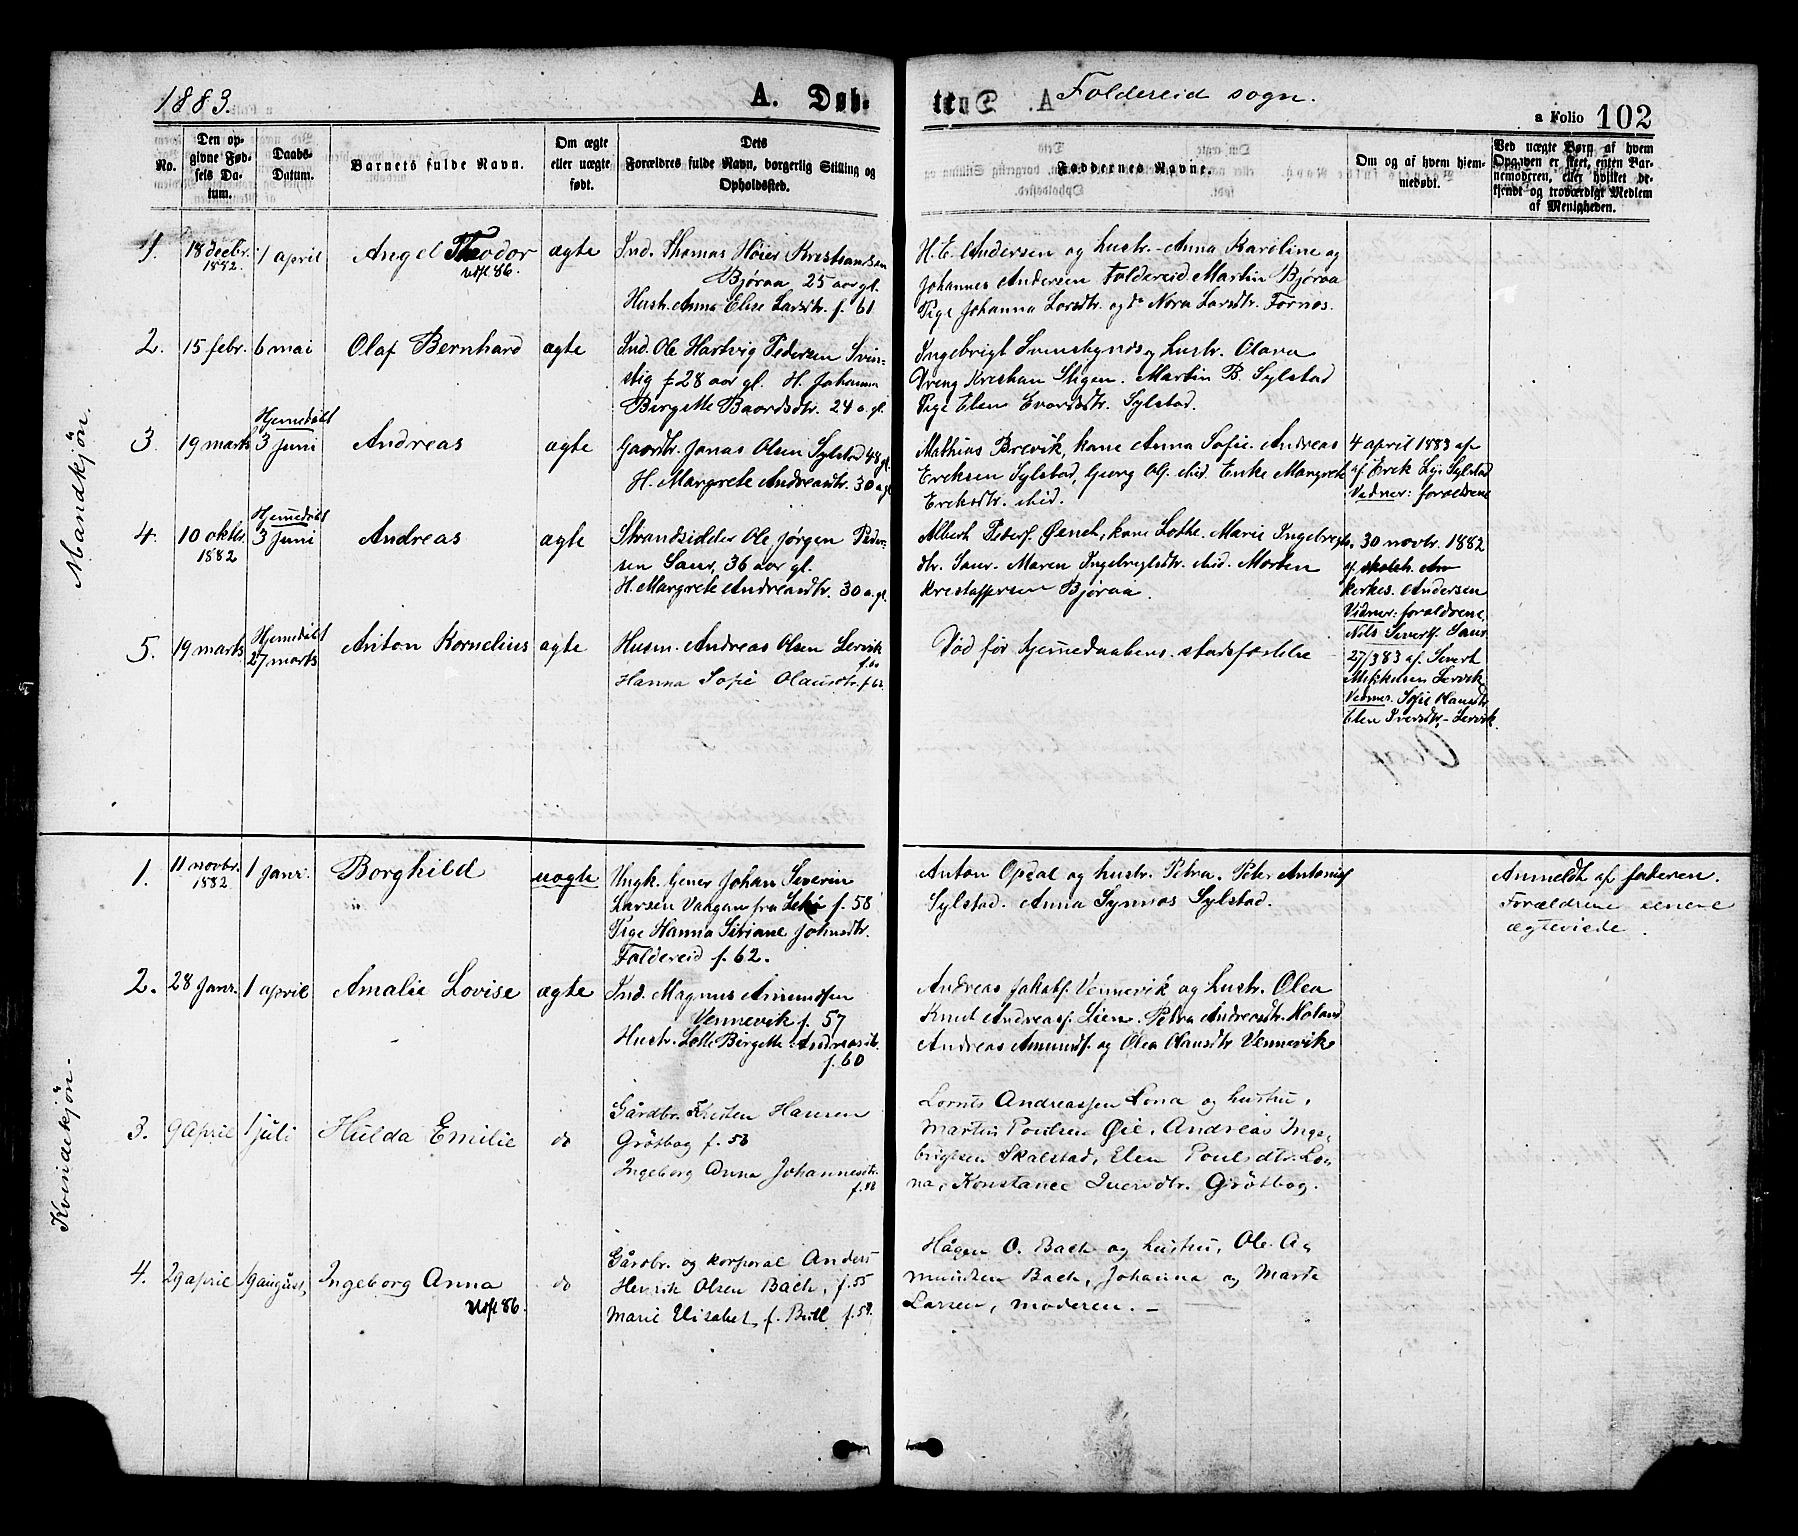 1883.
A. Døb-
Foldereid sogn.
a Folio 102
No.
Den op-
givne Fød-
sels Da-
tum.
Daabs-
Datum.
Barnets fulde Navn.
Om ægte
eller uægte
født.
Dets
Forældres fulde Navn, borgerlig Stilling og
Opholdssted.
Faddernes Navne.
Om og af hvem hjem-
medøbt.
Ved uægte Børn af hvem
Opgaven er skeet, enten Bar-
nemoderen, eller hvilket be-
kjendt og troværdigt Medlem
af Menigheden.
Mandkjøn.
1.
18 decbr.
1882
1 april
Angel Theodor
Udfl 86.
ægte
Ind. Thomas Høier Kristiansen
Bjøraa 25 aar gl.
Hustr. Anna Elise Larsdtr. f. 61
H. E. Andersen og hustr. Anna Karoline og
Johannes Andersen Foldereid Martin Bjøraa
Pige Johanna Larsdtr. og do Nora Larsdtr. Fornes.
2.
15 febr.
6 mai
Olaf Bernhard
ægte
Ind. Ole Hartvig Pedersen Svin-
stig f 28 aar gl. H. Johanna
Birgitte Baardsdtr. 24 a. gl.
Ingebrigt og hustr. Olava
Dreng Kristian Stigen. Martin B. Sylstad
Pige Elen Evardsdtr. Sylstad.
3.
19 marts
Hjemedøbt
3 Juni
Andreas
ægte
Gaardbr. Jonas Olsen Sylstad 48 gl.
H. Margrete Andreasdtr. 30 a gl.
Mathias Brevik, kone Anna Sofie. Andreas
Eriksen Sylstad, Georg Ols. ibid. Enke Margrete
Eriksdtr. ibid.
4 april 1883 af
af Erik Sylstad
Vidner: forældrene
4.
10 oktbr.
1882
Hjemedøbt
3 Juni
Andreas
ægte
Strandsidder Ole Jørgen Peder-
sen Saur, 36 aar gl.
H. Margrete Andreasdtr. 30 a. gl.
Albert Peders. kone Lotte. Marie Ingebrigts-
dtr. Saur. Maren Ingebrigtsdtr. ibid. Morten
Kristoffersen Bjøraa.
30 novbr. 1882
af
Andersen
Vidner: forældrene,
Nils Siverts. Saur
5.
19 marts
Hjemedøbt
27 marts
Anton Kornelius
ægte
Husm. Andreas Olsen Lervik
f. 60
Hanna Sofie Olausdtr. f. 62
Død før hjemedaabens stadfæstelse
27/3 83 af Sivert
Mikkelsen Lervik
Vidner. Sofie Olausdtr.
Elen Iversdtr. Lervik
Kvindekjøn.
1.
11 novbr.
1882
1 Janr.
Borghild
uægte
Ungk. Gener Johan Severin
Larsen Vaagan fra Lekø f. 58
Pige Hanna Siriane Johnsdtr.
Foldereid f. 62.
Anton Opdal og hustr. Petra. Peter Antonis
Sylstad. Anna Synnøs Sylstad.
Anmeldt af faderen.
Forældrene senere
ægteviede.
2.
28 Janr.
1 april
Amalie Lovise
ægte
Ind. Magnus Amundsen
Vennevik f. 57
Hustr. Lotte Birgitte Andreasdtr.
f. 60
Andreas Jakobs. Vennevik og hustr. Olea
Knut Andreas. Lien. Petra Andreasdtr. Moland
Andreas Amunds. og Olea Olausdtr Vennevik
3.
9 April
1 juli
Hulda Emilie
do
Gårdbr. Kristen Hansen
Grøtbog f. 53
Ingeborg Anna Johannesdtr.
Lornts Andreassen Lona og hustru,
Martin Poulsen Øie, Andreas Inge-
brigtsen Skalstad, Elen Poulsdtr. Lo-
na, Konstance Iversdtr. Grøtbog.
4.
29 april
19 august,
Ingeborg Anna
Udfl 86.
do
Gårdbr. og korporal Anders
Henrik Olsen Bach, f. 55
Marie Elisabet, f. Bull f. 59.
Hågen O. Bach og hustru, Ole A-
mundsen Bach, Johanna og Marta
Larsen, moderen. —